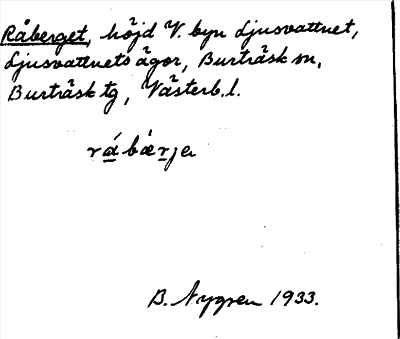 Råberget, höjd V. byn Ljusvattnet,
Ljusvattnets ägor, Burträsk sn,
Burträsk tg, Västerb. l.
rábærja
B. Nygren 1933.